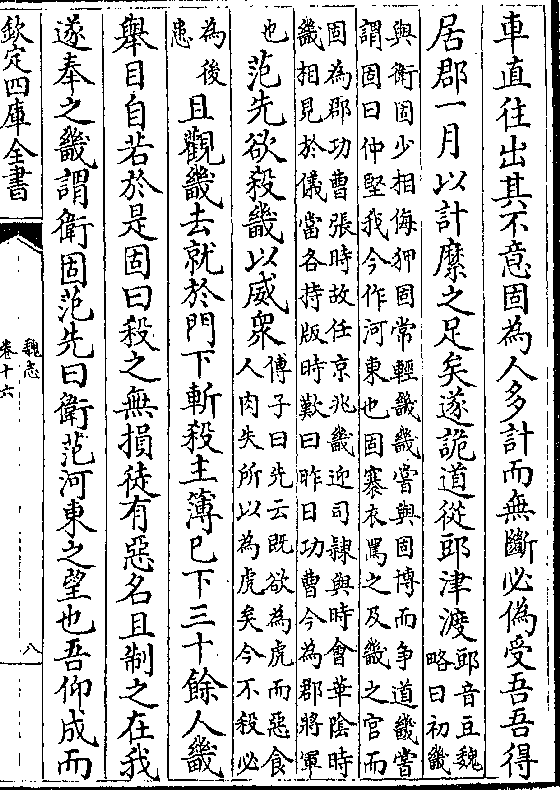 車直往出其不意固為人多計而無斷必偽受吾吾得
居郡一月以計縻之足矣遂詭道從郖津渡郖音豆魏
略曰初畿
與衛固少相侮狎固常輕畿畿嘗與固博而争道畿嘗
謂固曰仲堅我今作河東也固褰衣罵之及畿之官而
固為郡功曹張時故任京兆畿迎司隷與時會華陰時
畿相見於儀當各持版時歎曰昨日功曹今為郡將軍
也范先欲殺畿以威衆傅子曰先云既欲為虎而惡食
人肉失所以為虎矣今不殺必
為後
患且觀畿去就於門下斬殺主簿已下三十餘人畿
舉目自若於是固曰殺之無損徒有惡名且制之在我
遂奉之畿謂衛固范先曰衛范河東之望也吾仰成而
欽定四庫全書
魏志
卷十六
八